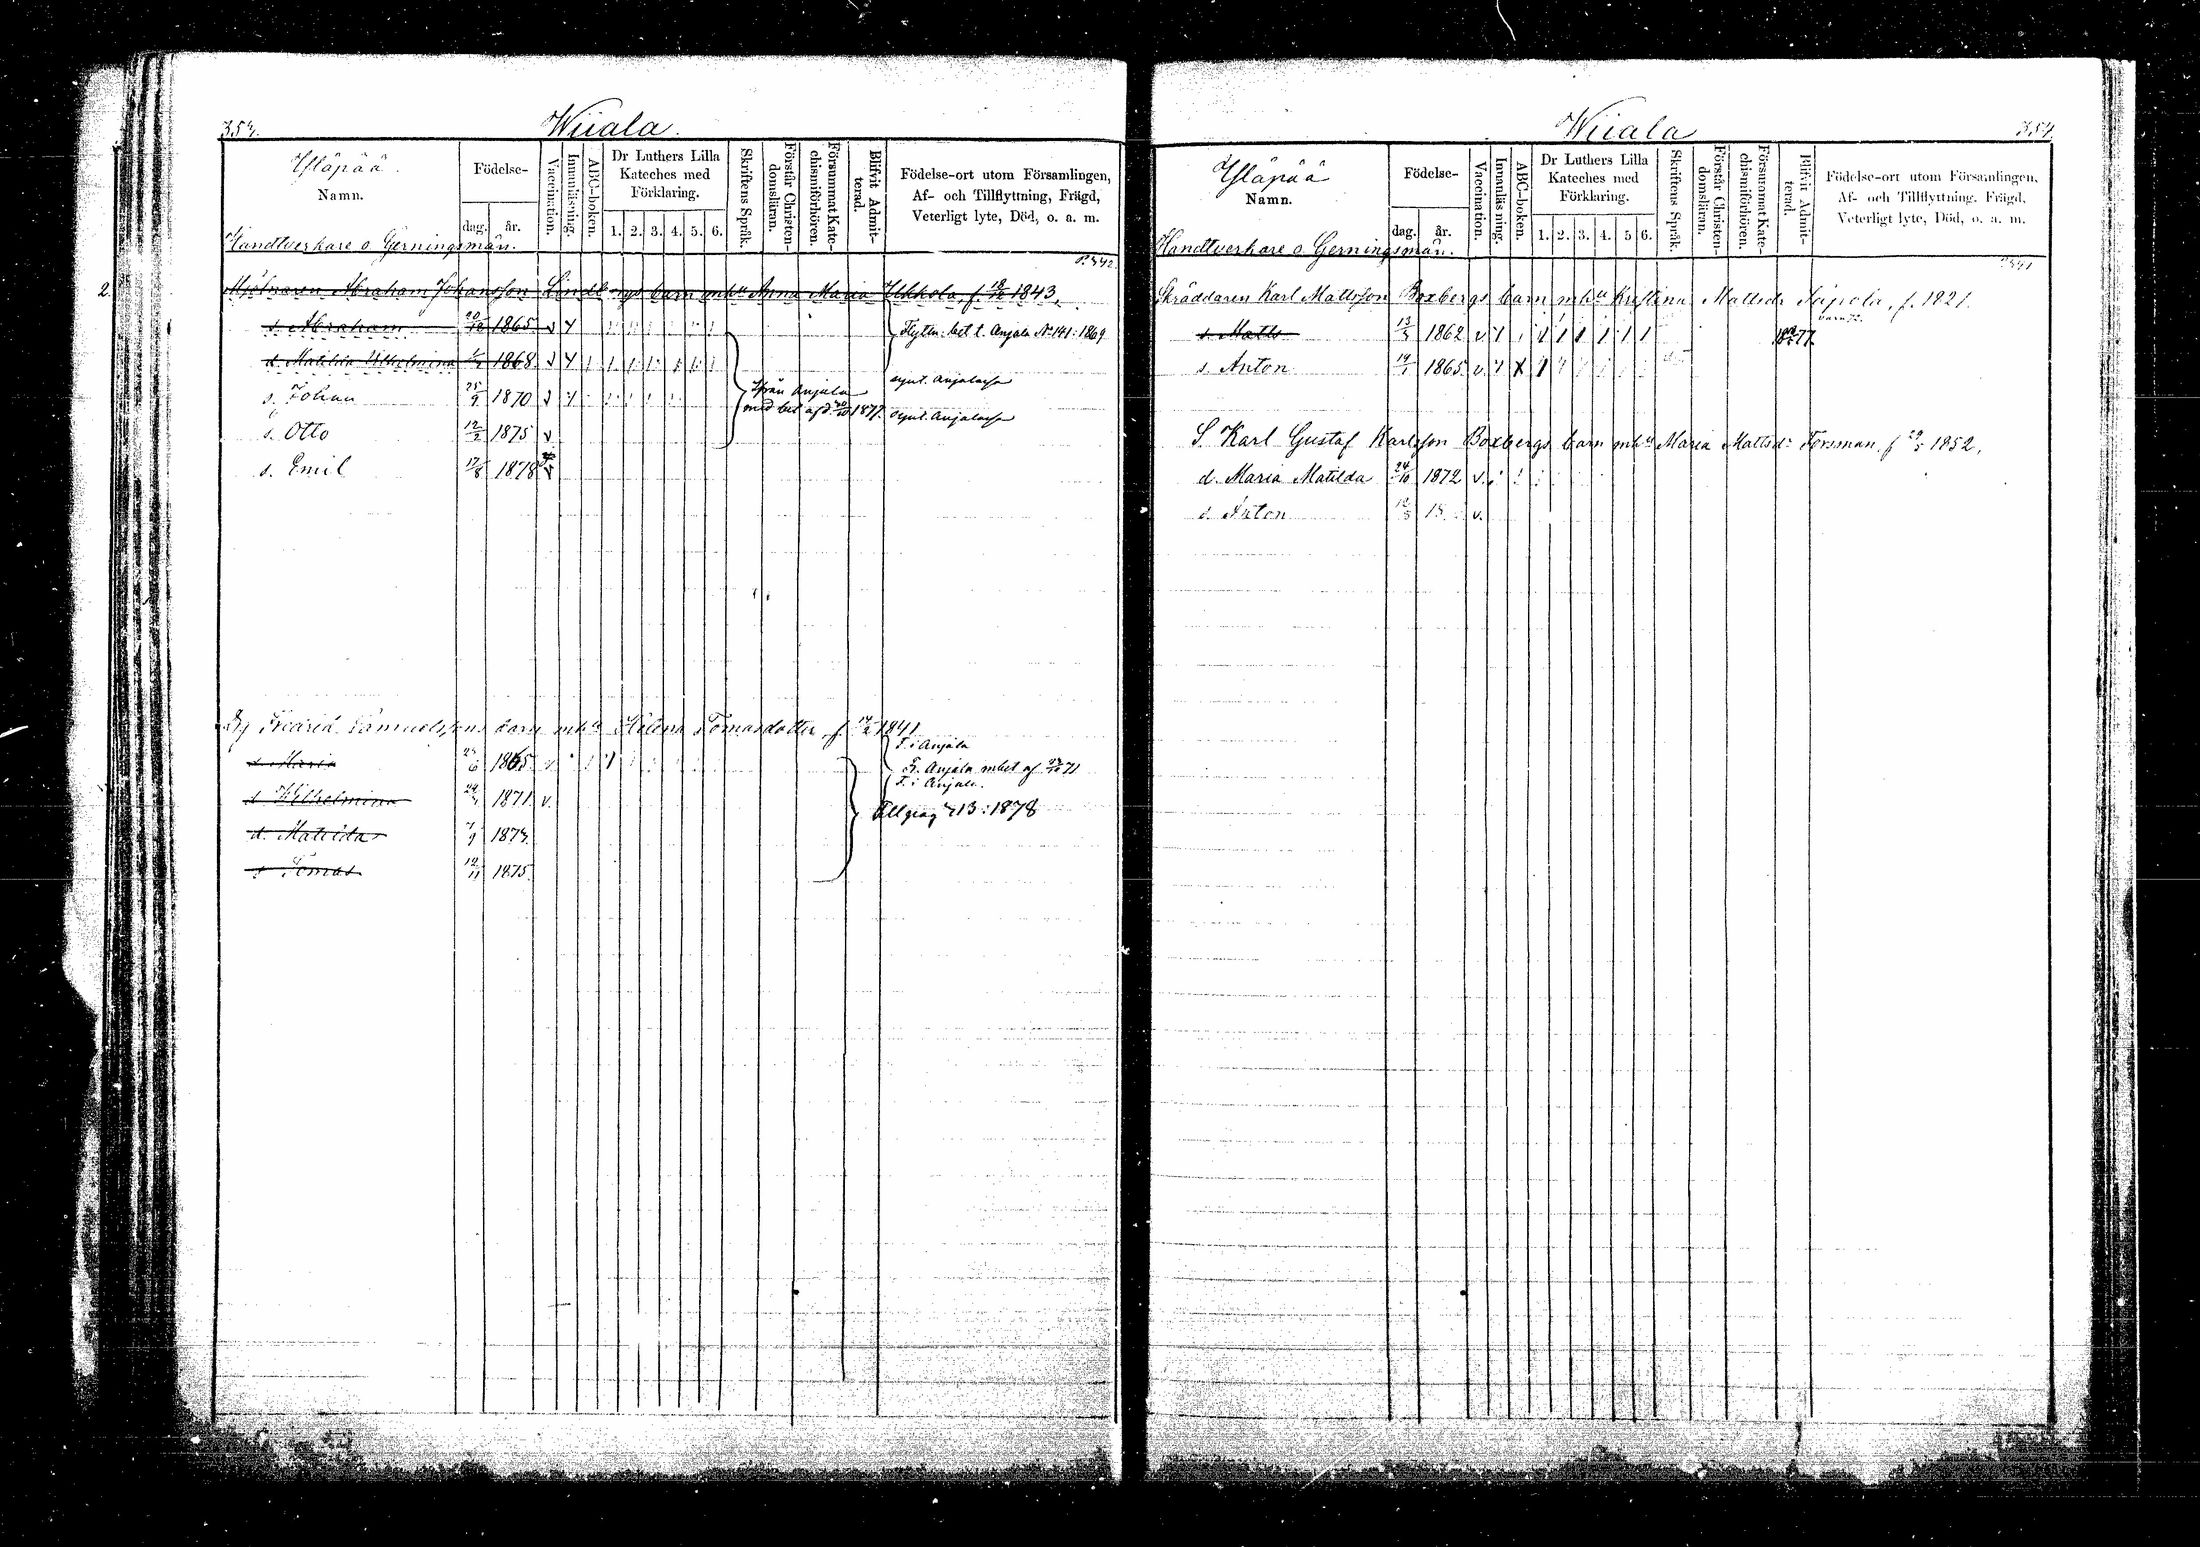 353.
Wiiala.
Yläpää.
Namn.
Födelse-
dag.
år.
Vaccination.
Innanläsning.
ABC-boken.
Dr Luthers Lilla
Kateches med
Förklaring.
1. 2. 3. 4. 5. 6.
Skriftens Språk.
Förstår Christen-
domsläran.
Försummat Kate-
chismiförhören.
Blifvit Admit-
terad.
Födelse-ort utom Församlingen,
Af- och Tillflyttning, Frägd,
Veterligt lyte, Död, o. a. m.
Handtverkare o. Gerningsmän.
P. 342.
2. Mjölnaren Abraham Johansson Lindbergs barn mhu Anna Maria Ukkola, f. 18/12 1843.
s. Abraham 20/12 1865 v
Flyttn. bet. t. Anjala No 141: 1869
d. Matilda Wilhelmina 1868 v
s. Johan 25/9 1870 v
ifrån Anjala
med bet af d. 30/10 1877.
s. Otto 12/2 1875 v
s. Emil 17/8 1878 v
Fredrik Samuelssons barn mhu Helena Tomasdotter, f. 1841
F. i Anjala
1865
fr. Anjala mbet af 71
F. i Anjala.
d. Wilhelmina 1871. v.
1878
d. Matilda 7/9 1873.
s. Tomas 12/11 1875.
Wiiala
354.
Yläpää
Namn.
Födelse-
dag.
år.
Vaccination.
Innanläsning.
ABC-boken.
Dr Luthers Lilla
Kateches med
Förklaring.
1. 2. 3. 4. 5 6.
Skriftens Språk.
Förstår Christen-
domsläran.
Försummat Kate-
chismiförhören.
Blifvit Admit-
terad.
Födelse-ort utom Församlingen,
Af- och Tillflyttning, Frägd,
Veterligt lyte, Död, o. a. m.
Handtverkare o. Gerningsmän.
Skräddaren Karl Mattsson Boxbergs barn mhu Kristina Mattsdr Sipola, f. 1821.
s. Matts 13/3 1862 v 77.
s. Anton 1865 v.
S. Karl Gustaf Karlsson Boxbergs barn mhu Maria Mattsdr Forsman, f 1852,
d. Maria Matilda 24/10 1872 v.
s. Anton v.